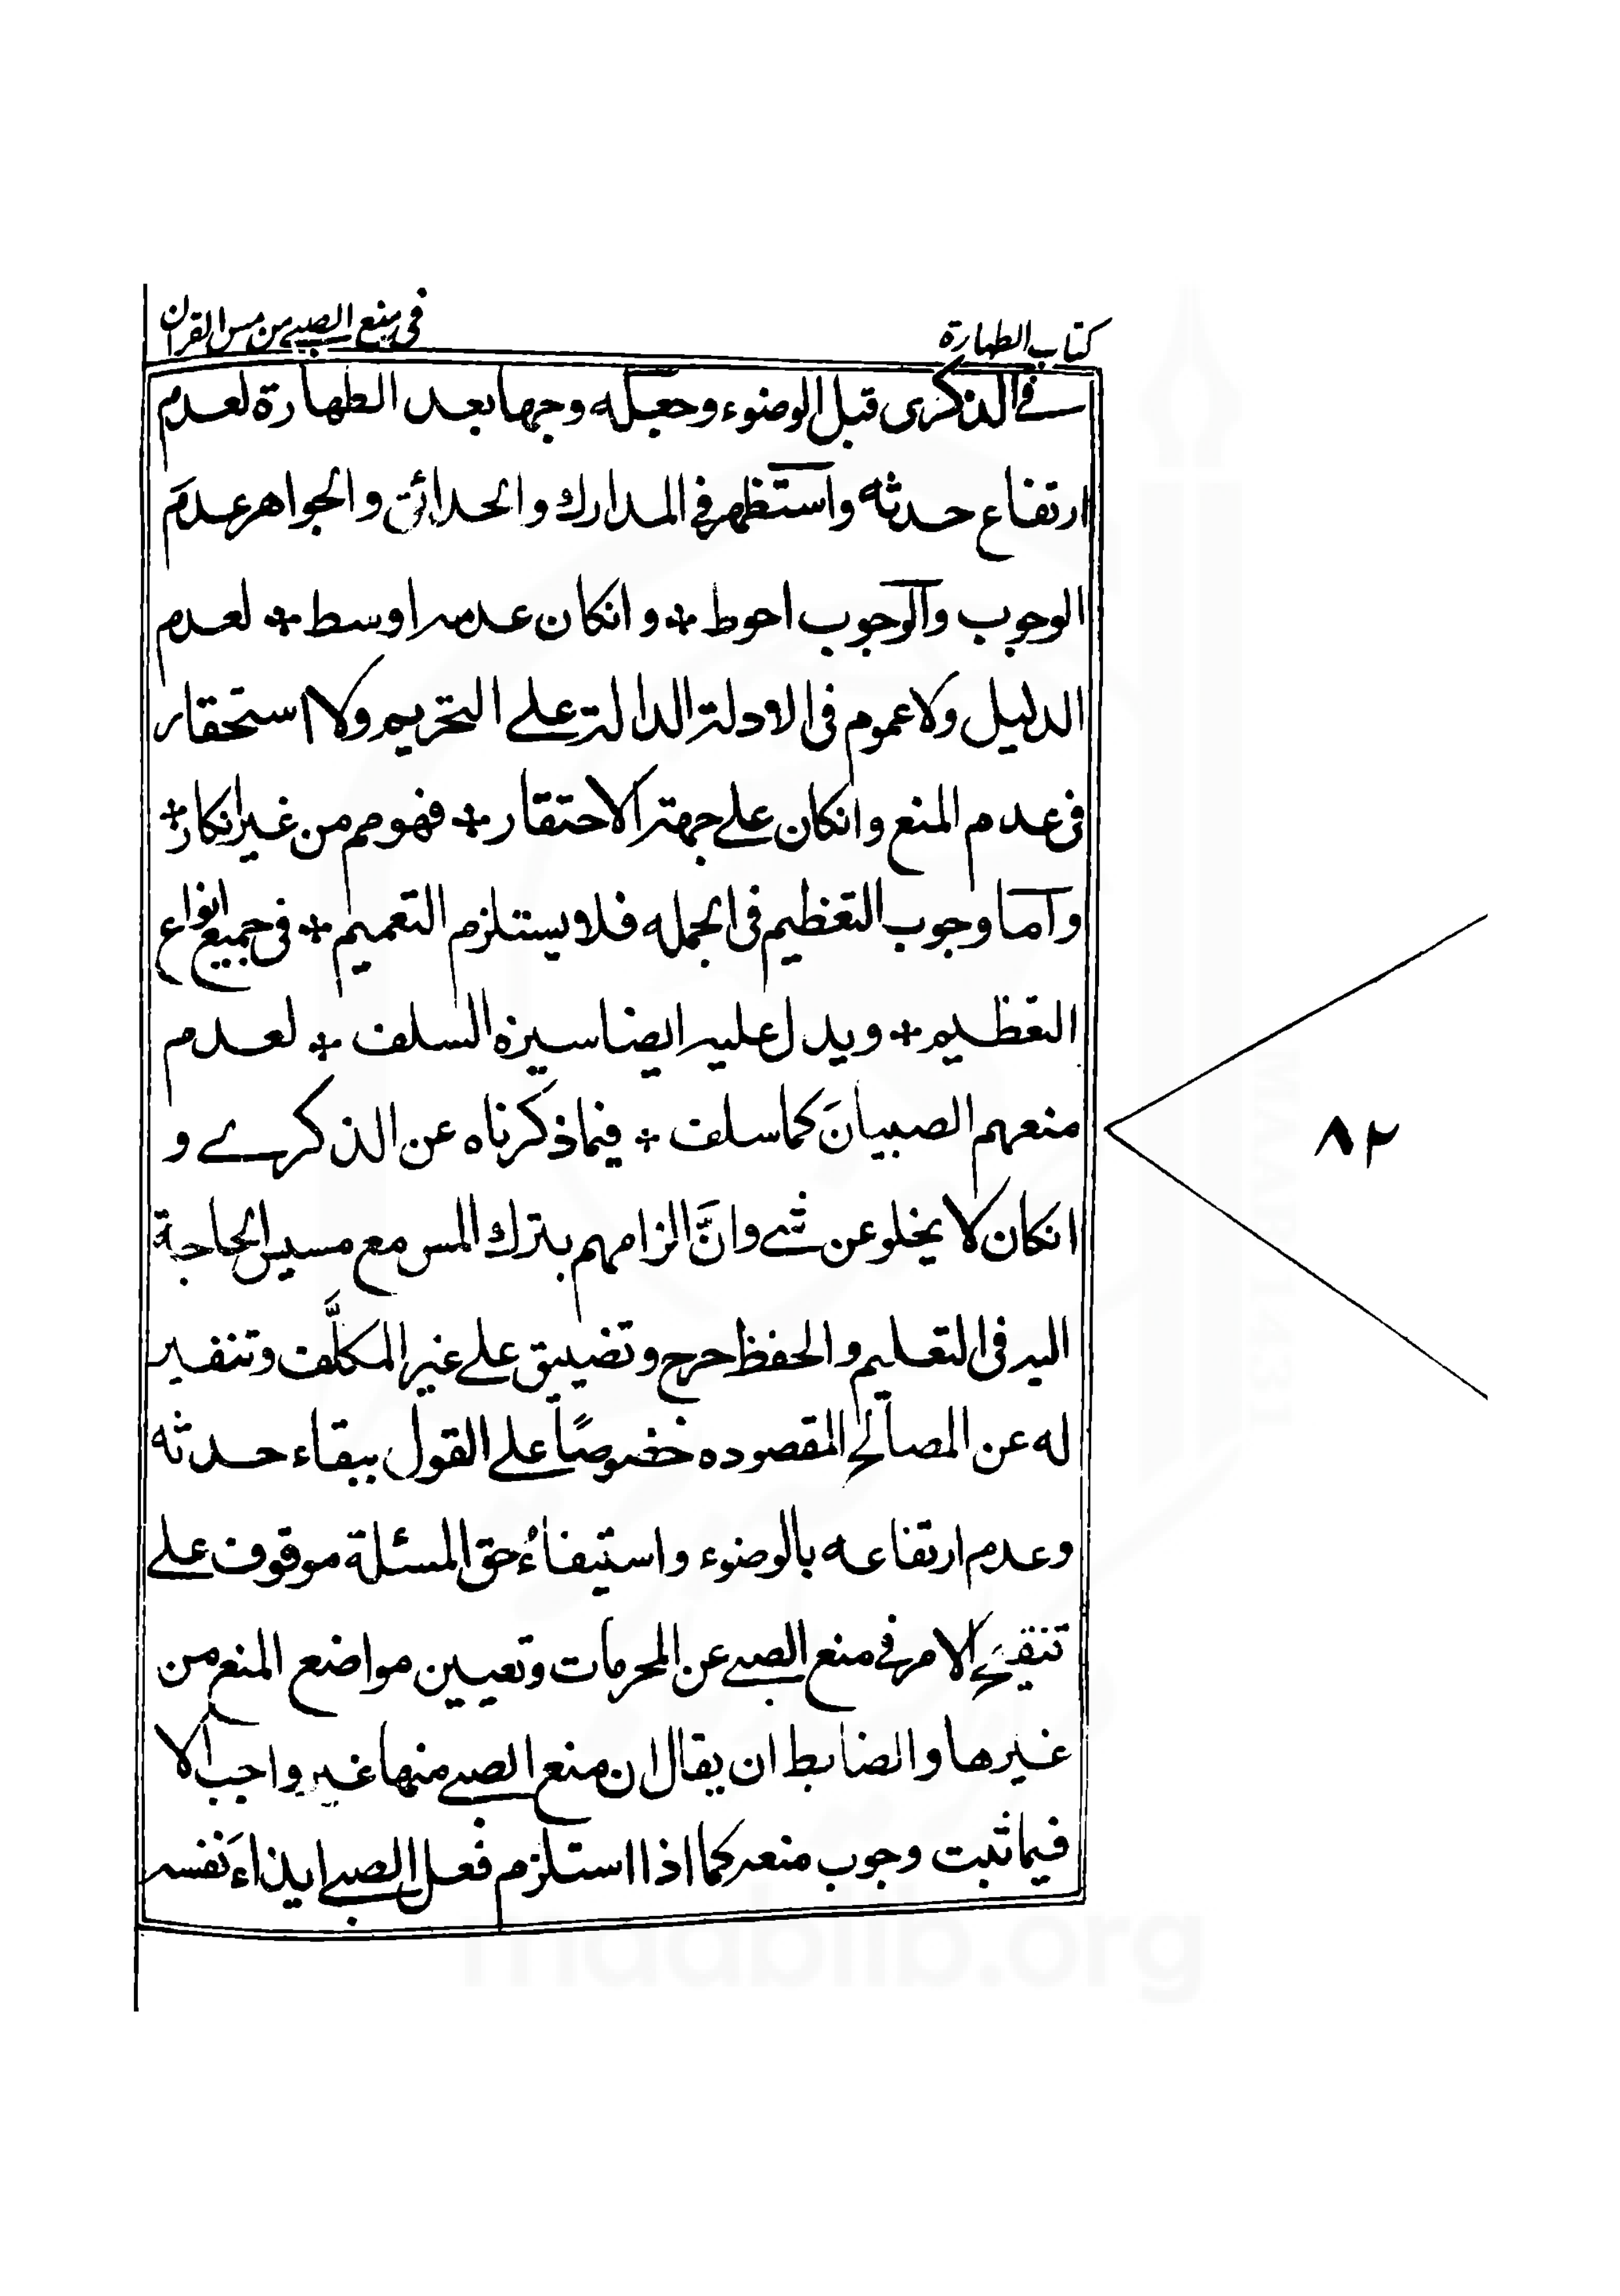 كتاب الطهارة
فى منع الصبى من مس القران
فى الذكرى قبل الوضوء وجعله وجها بعد الطهارة لعدم
ارتفاع حدثه واستظهر فى المدارك والحدائق والجواهر عدم
الوجوب والوجوب احوط * وانكان عدمه اوسط * لعدم
الدليل ولا عموم فى الادلة الدالة على التحريم ولا استحقار
فى عدم المنع وانكان على جهة الاحتقار * فهو مم من غير انكار *
واما وجوب التعظيم فى الجمله فلا يستلزم التعميم * فى جميع انواع
التعظيم * ويدل عليه ايضا سيرة السلف * لعدم
منعهم الصبيان كما سلف * فيما ذكرناه عن الذكرى و
انكان لا يخلو عن شىء وانَّ الزامهم بترك المس مع مسيس الحاجة
اليه فى التعليم والحفظ حرج وتضييق على غير المكلَّف وتنفير
له عن المصالح المقصوده خصوصًا على القول ببقاء حدثه
وعدم ارتفاعه بالوضوء واستيفاءُ حق المسئلة موقوف على
تنقيح الامر فى منع الصبى عن المحرمات وتعيين مواضع المنع من
غيرها والضابط ان يقال ان منع الصبى منها غير واجب الا
فيما ثبت وجوب منعه كما اذا استلزم فعل الصبى ايذاء نفسه
٨٢
maablib.org
MAAB 1431